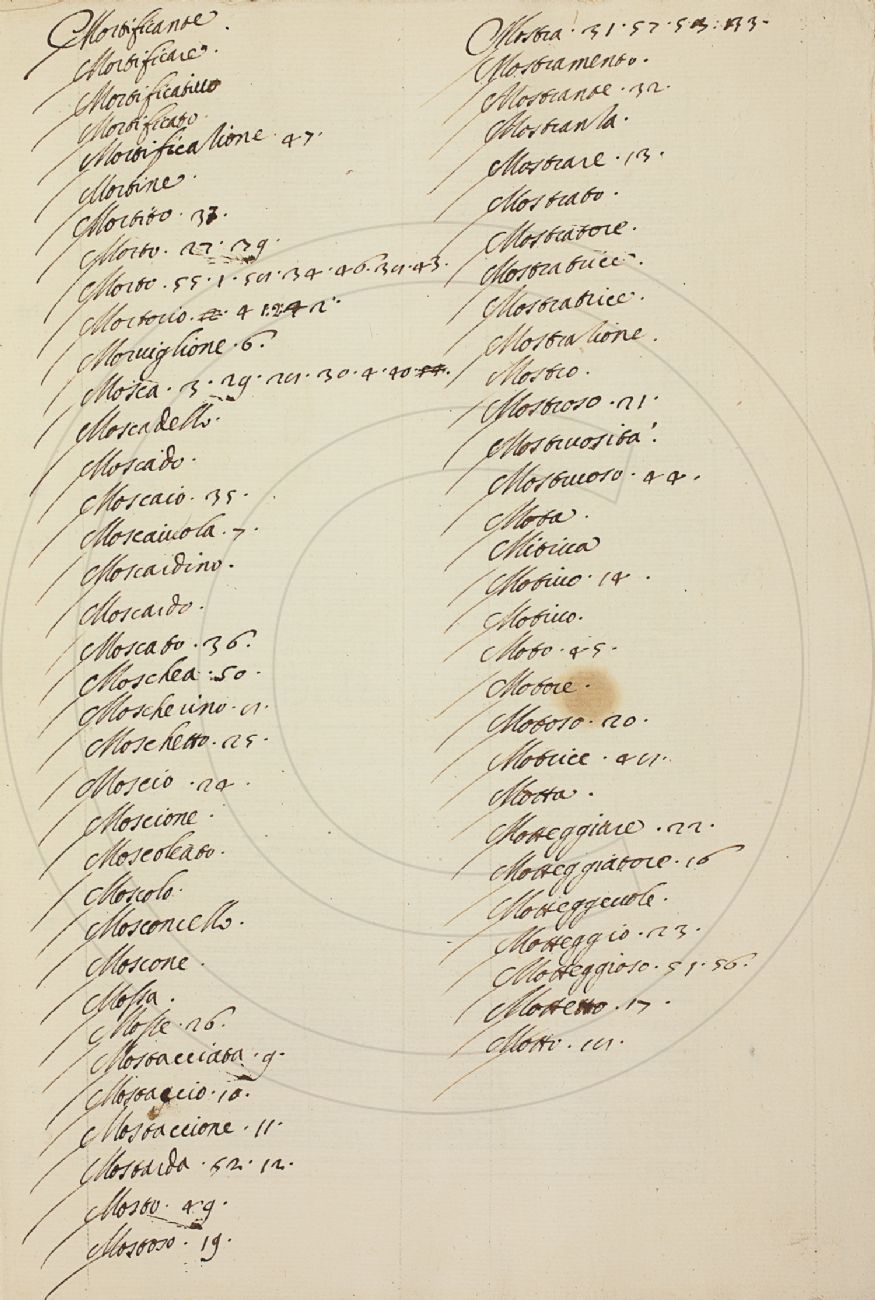 Mortificante.
Mortificare.
Mortificativo
Mortificato.
Mortificatione. 47.
Mortine.
Mortito. 37.
Morto. 27. 39.
Morto. 55. 1. 58. 34. 46. 38. 43.
Mortorio. 41. 42.
Morviglione. 6.
Mosca. 3. 29. 28. 30. 4. 40.
Moscadello.
Moscado.
Moscaio. 35.
Moscaiuola. 7.
Moscardino.
Moscardo.
Moscato. 36.
Moschea. 50.
Moscherino. 8.
Moschetto. 25.
Moscio. 24.
Moscione.
Moscoleato.
Moscolo.
Mosconcello.
Moscone.
Mossa.
Mosse. 26.
Mostacciata. 9.
Mostaccio. 10.
Mostaccione. 11.
Mostarda. 52. 12.
Mosto. 49.
Mostoso. 19.
Mostra. 31. 57. 53. 33.
Mostramento.
Mostrante. 32.
Mostranza.
Mostrare. 13.
Mostrato.
Mostratore.
Mostratrice.
Mostratrice.
Mostratione.
Mostro.
Mostroso. 21.
Mostruosità.
Mostruoso. 44.
Mota.
Mitiua
Motivo. 14.
Motivo.
Moto. 45.
Motore.
Motoso. 20.
Motrice. 48.
Motta.
Motteggiare. 22.
Motteggiatore. 16
Motteggevole.
Motteggio. 23.
Motteggioso. 51. 56.
Mottetto. 17.
Motto. 18.